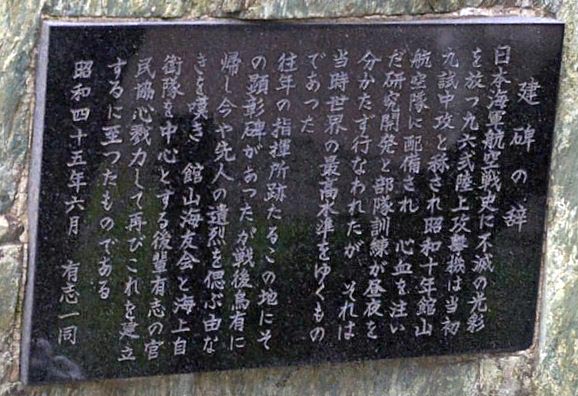 建碑の辞
日本海軍航空戦史に不滅の光彩
を放つ九六式陸上攻撃機は当初
九試中攻と称され昭和十年館山
航空隊に配備され 心血を注い
だ研究開発と部隊訓練が昼夜を
分かたず行なわれたが それは
当時世界の最高水準をゆくもの
であった
往年の指揮所跡たるこの地にそ
の顕彰碑があつたが戦後烏有に
帰し今や先人の遺烈を偲ぶ由な
きを嘆き 館山海友会と海上自
衛隊を中心とする後輩有志の官
民協心戮力して再びこれを建立
するに至つたものである
昭和四十五年六月 有志一同